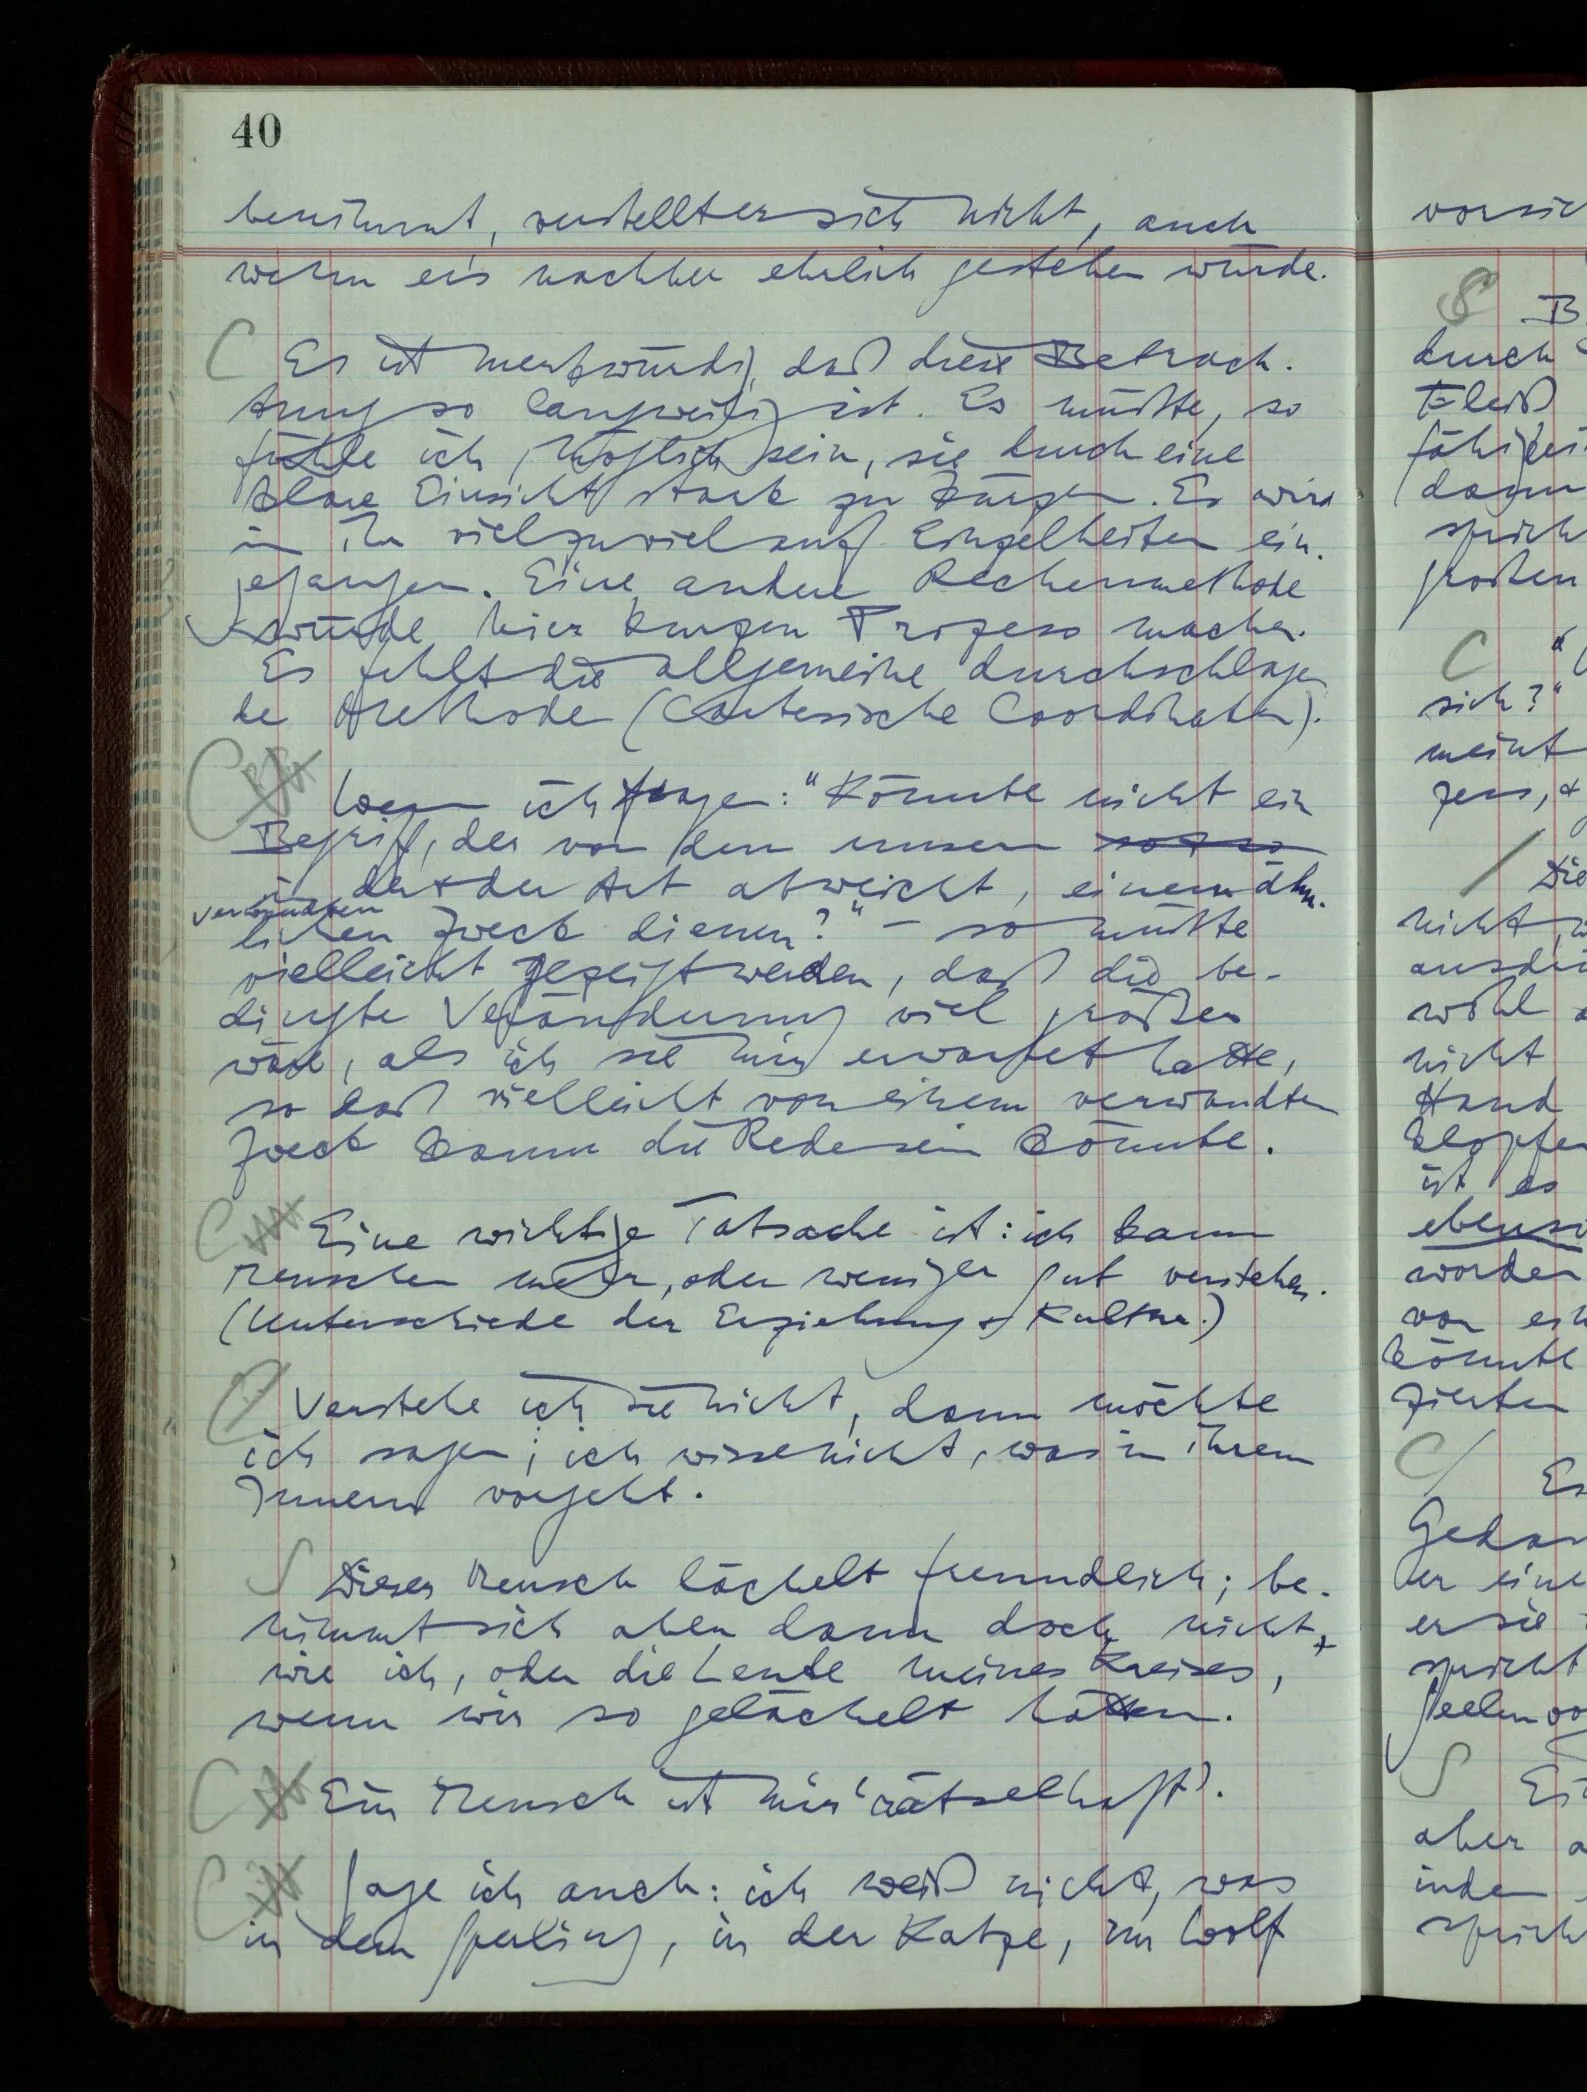 40
benimmt, verstellt er sich nicht, auch
wenn er's nachher ehrlich gestehen würde.
C Es ist merkwürdig, daß diese Betrach-
tung so langweilig ist. Es müßte, so
fühle ich, möglich sein, sie durch eine
klare Einsicht stark zu kürzen. Es wird
in ihr viel zu viel auf Einzelheiten ein-
gegangen. Eine andere Rechenmethode
würde hier kurzen Prozess machen.
Es fehlt die allgemeine durchschlagen
de Methode (Cartesische Coordinaten).
C
Wenn ich frage: "Könnte nicht ein
Begriff, der von dem unsern
in der & der Art abweicht, einem ähn-
verwandten
lichen Zweck dienen?" – so müßte
vielleicht gezeigt werden, daß die be-
dingte Veränderung viel größer
wäre, als ich sie mir erwartet hatte,
so daß vielleicht von einem verwandten
Zweck kaum die Rede sein könnte.
C Eine wichtige Tatsache ist: ich kann
Menschen mehr, oder weniger gut verstehen.
(Unterschiede der Erziehung & Kultur.)
Verstehe ich sie nicht, dann möchte
ich sagen, ich wisse nicht, was in ihrem
Innern vorgeht.
S Dieser Mensch lächelt freundlich; be-
nimmt sich aber dann doch nicht,
wie ich, oder die Leute meines Kreises,
wenn wir so gelächelt hätten.
C Ein Mensch ist mir 'rätselhaft'.
C Sage ich auch: ich weiß nicht, was
in dem Sperling, in der Katze, im Wolf
S B
durch
Fleiß
spricht
großen
C
sich?"
meint
/ Die
nicht, w
wohl
nicht
Hand
klopfen
ist es
ebenso
worden
von ein
könnte
C/ Es
er eine
er sie
spricht
S
aber a